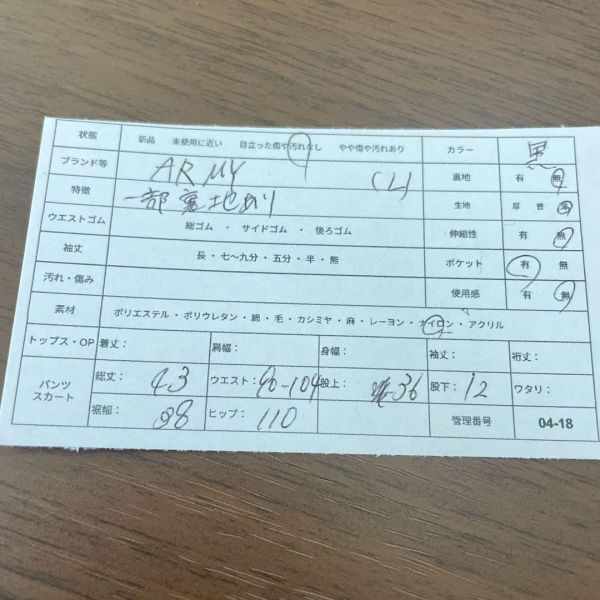 状態 新品 未使用に近い 目立った傷や汚れなし やや傷や汚れあり カラー 黒
ブランド等 ARMY (L) 裏地 有 無
特徴 一部裏地あり 生地 厚 普 薄
ウエストゴム 総ゴム ・ サイドゴム ・ 後ろゴム 伸縮性 有 無
袖丈 長・七〜九分・五分・半・無 ポケット 有 無
汚れ・傷み 使用感 有 無
素材 ポリエステル・ポリウレタン・綿・毛・カシミヤ・麻・レーヨン・ナイロン・アクリル
トップス・OP 着丈: 肩幅: 身幅: 袖丈: 裄丈:
パンツ スカート 総丈: 43 ウエスト: 90-104 股上: 36 股下: 12 ワタリ:
裾幅: 38 ヒップ: 110 管理番号 04-18